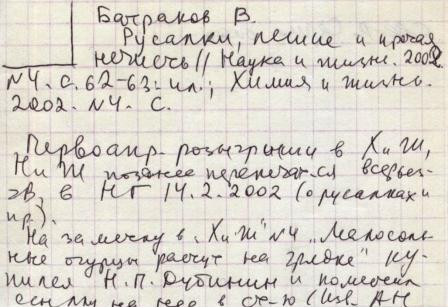 Батраков В.
Русалки, лешие и прочая
нечисть // Наука и жизнь. 2002.
№4. С. 62-63: ил.; Химия и жизнь.
2002. №4. С.
Первоапр. розыгрыши в ХиЖ,
НиЖ позднее перепечат-ся всерьез
в НГ 14.2.2002 (о русалках и
пр.).
На заметку в "ХиЖ" №4 "Малосоль-
ные огурцы растут на грядке" ку-
пился Н.П. Дубинин и поместил
ссылку на нее в ст-ю (Изв. АН